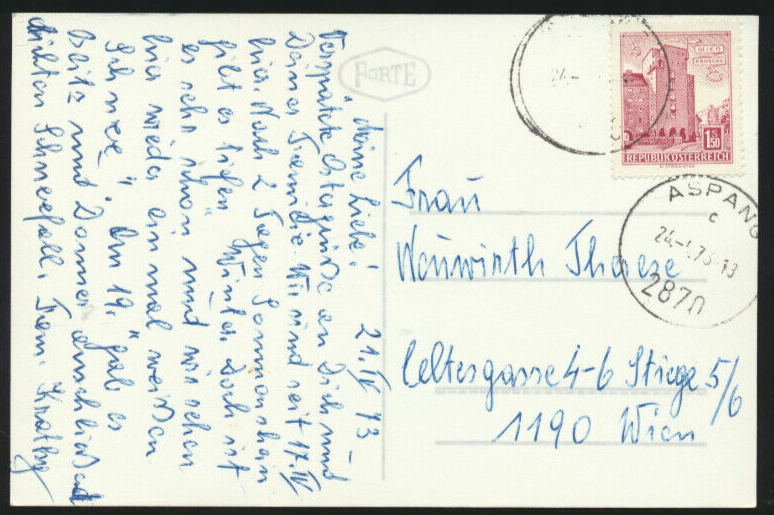 21. IV 73
Meine Liebe!
Verspätete Ostergrüße an Dich und
Deiner Familie. Wir sind seit 17. IV
hier. Nach 2 Tagen Sonnenschein
gibt es tiefen Winter. Doch ist
es sehr schön und wir sehen
hier wieder einmal weißen
Schnee". Am 19. gab es
Blitz und Donner anschließend
dichten Schneefall. Fam.
FORTE
Frau
Neuwirth Therese
Celtesgasse 4-6 Stiege 5/6
1190 Wien
WIEN
1.50
REPUBLIK ÖSTERREICH
ASPANG
c
24.-4.73-13
2870
24.-